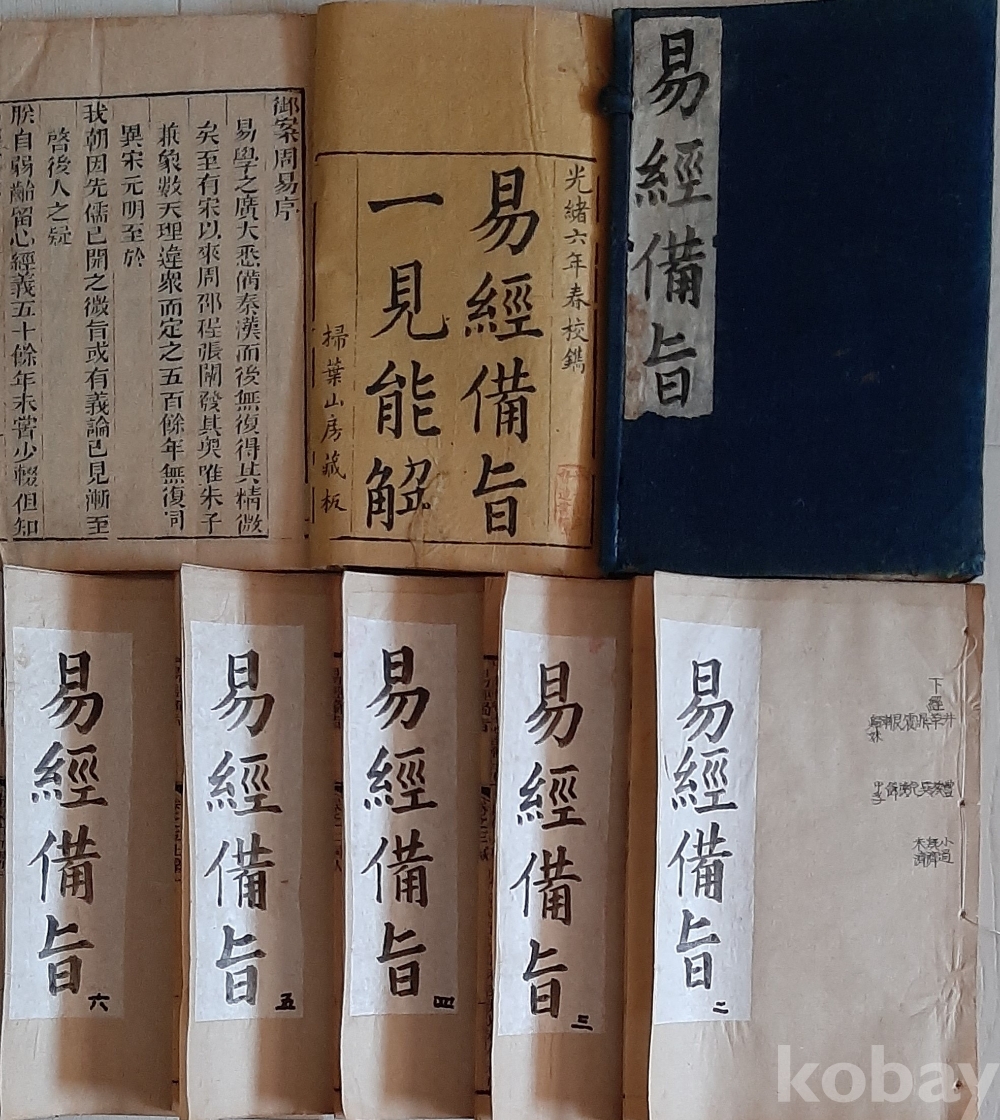 易經備旨
光緒六年春校鐫
易經備旨
一見能解
掃葉山房藏板
御案周易序
易學之廣大悉備秦漢而後無復得其精微
矣至有宋以來周邵程張闡發其奧唯朱子
兼象數天理違衆而定之五百餘年無復同
異宋元明至於
我朝因先儒已開之微旨或有議論已見漸至
啓後人之疑
朕自弱齡留心經義五十餘年未嘗少輟但知
易經備旨 二
下經
易經備旨 三
易經備旨 四
易經備旨 五
易經備旨 六
kobay